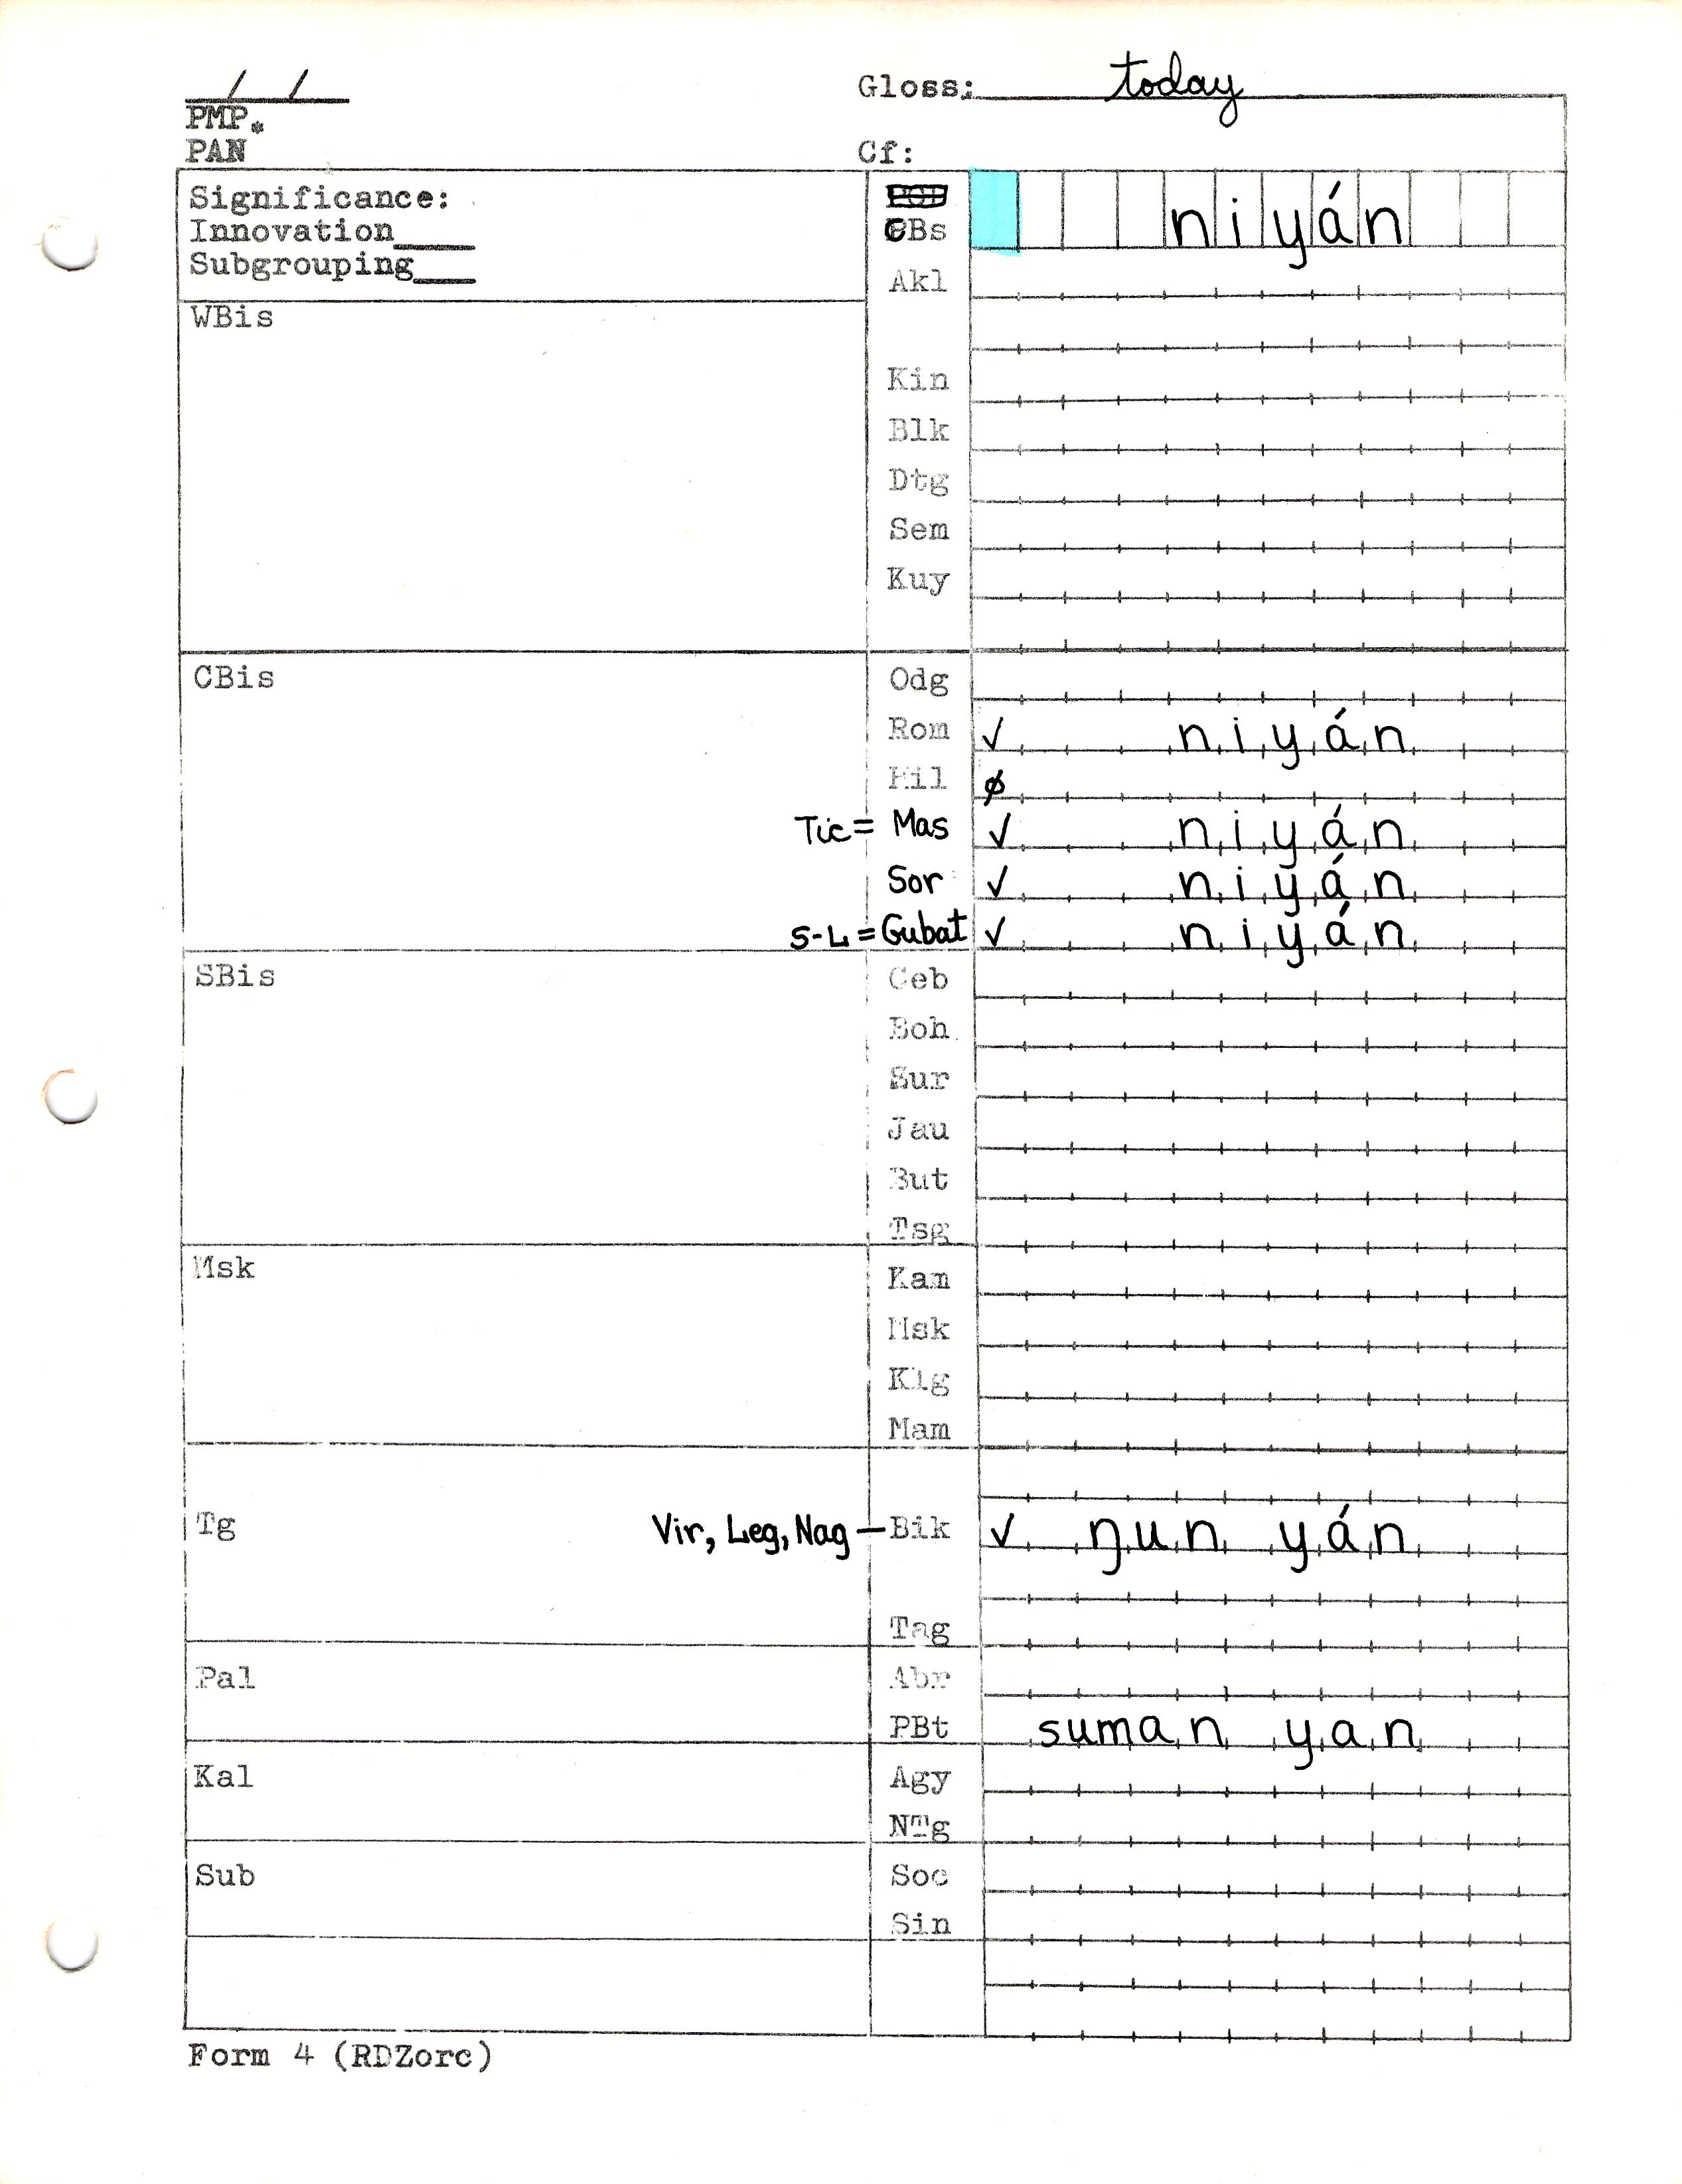 / /
Gloss: today
PMP*
PAN
Cf:
Significance:
Innovation
Subgrouping
CBs niyán
Akl
WBis
Kin
Blk
Dtg
Sem
Kuy
CBis
Odg
Rom ✓ niyán
Hil ø
Tic = Mas ✓ niyán
Sor ✓ niyán
S-L = Gubat ✓ niyán
SBis
Ceb
Boh
Sur
Jau
But
Tsg
Msk
Kam
Msk
Klg
Mam
Tg
Vir, Leg, Nag — Bik ✓ ŋun yán
Tag
Pal
Abr
PBt suman yan
Kal
Agy
NTg
Sub
Soc
Sin
Form 4 (RDZorc)